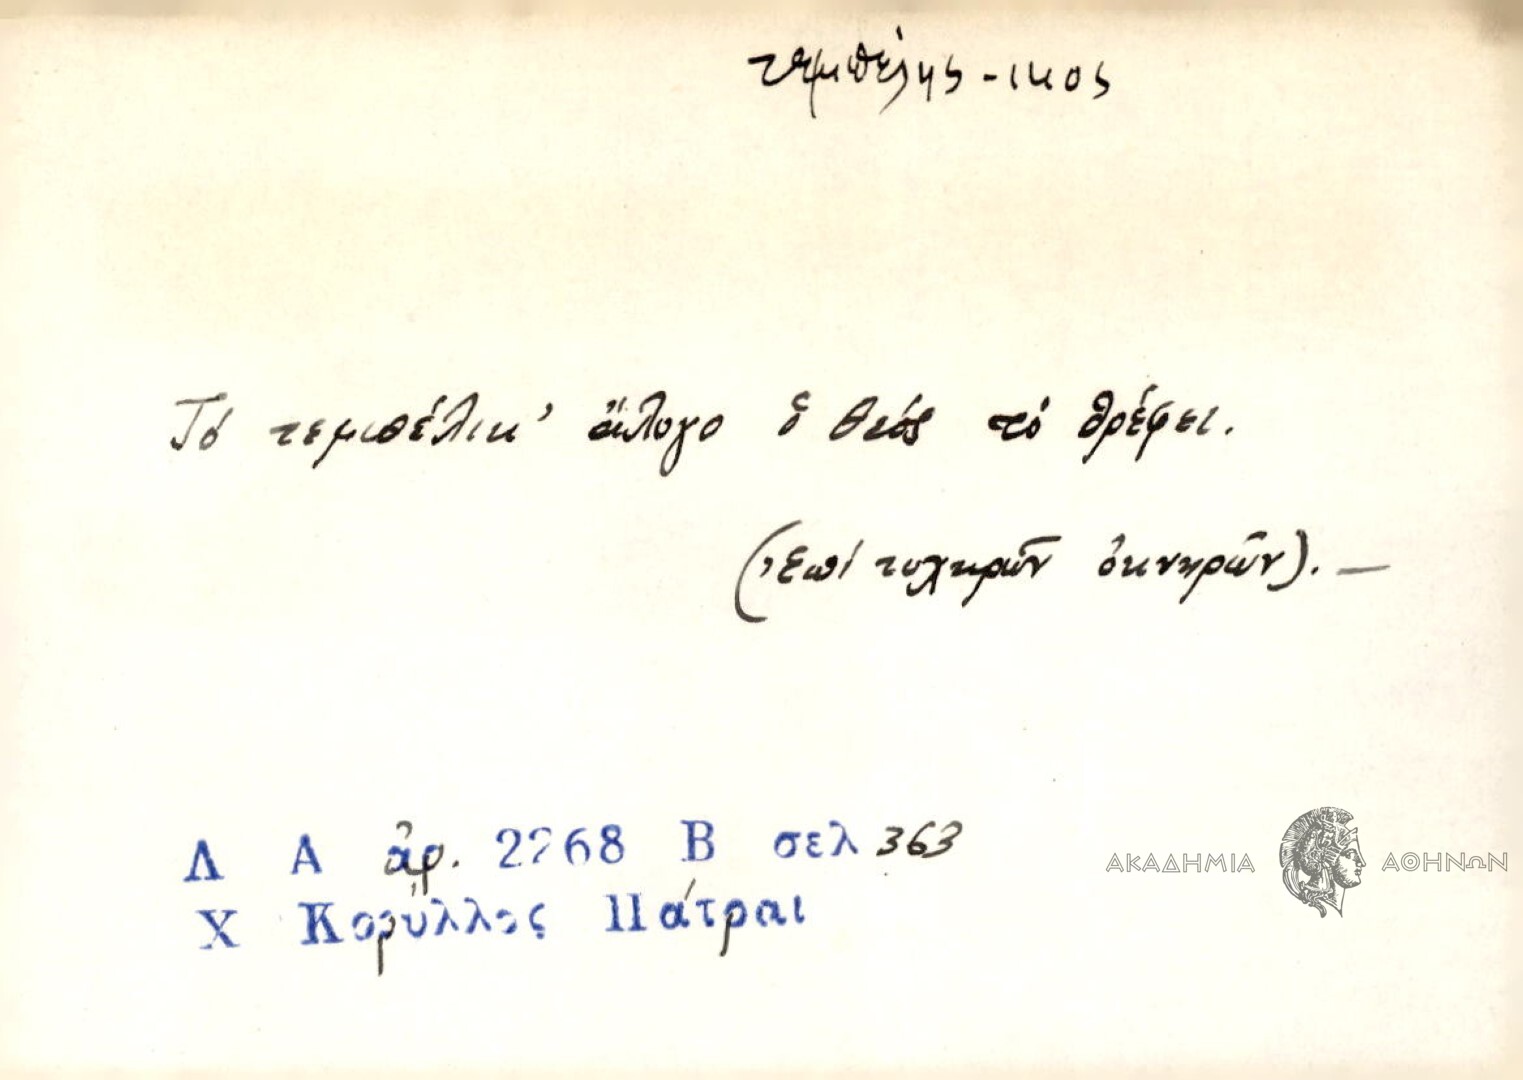 τεμπέλης - ικος
Τό τεμπέλικ' ἄλογο ὁ θεός τό θρέφει.
(Ἐπί τυχηρῶν ὀκνηρῶν). —
Λ Α ἀρ. 2268 Β σελ 363
Χ Κορύλλος Πάτραι
ΑΚΑΔΗΜΙΑ ΑΘΗΝΩΝ